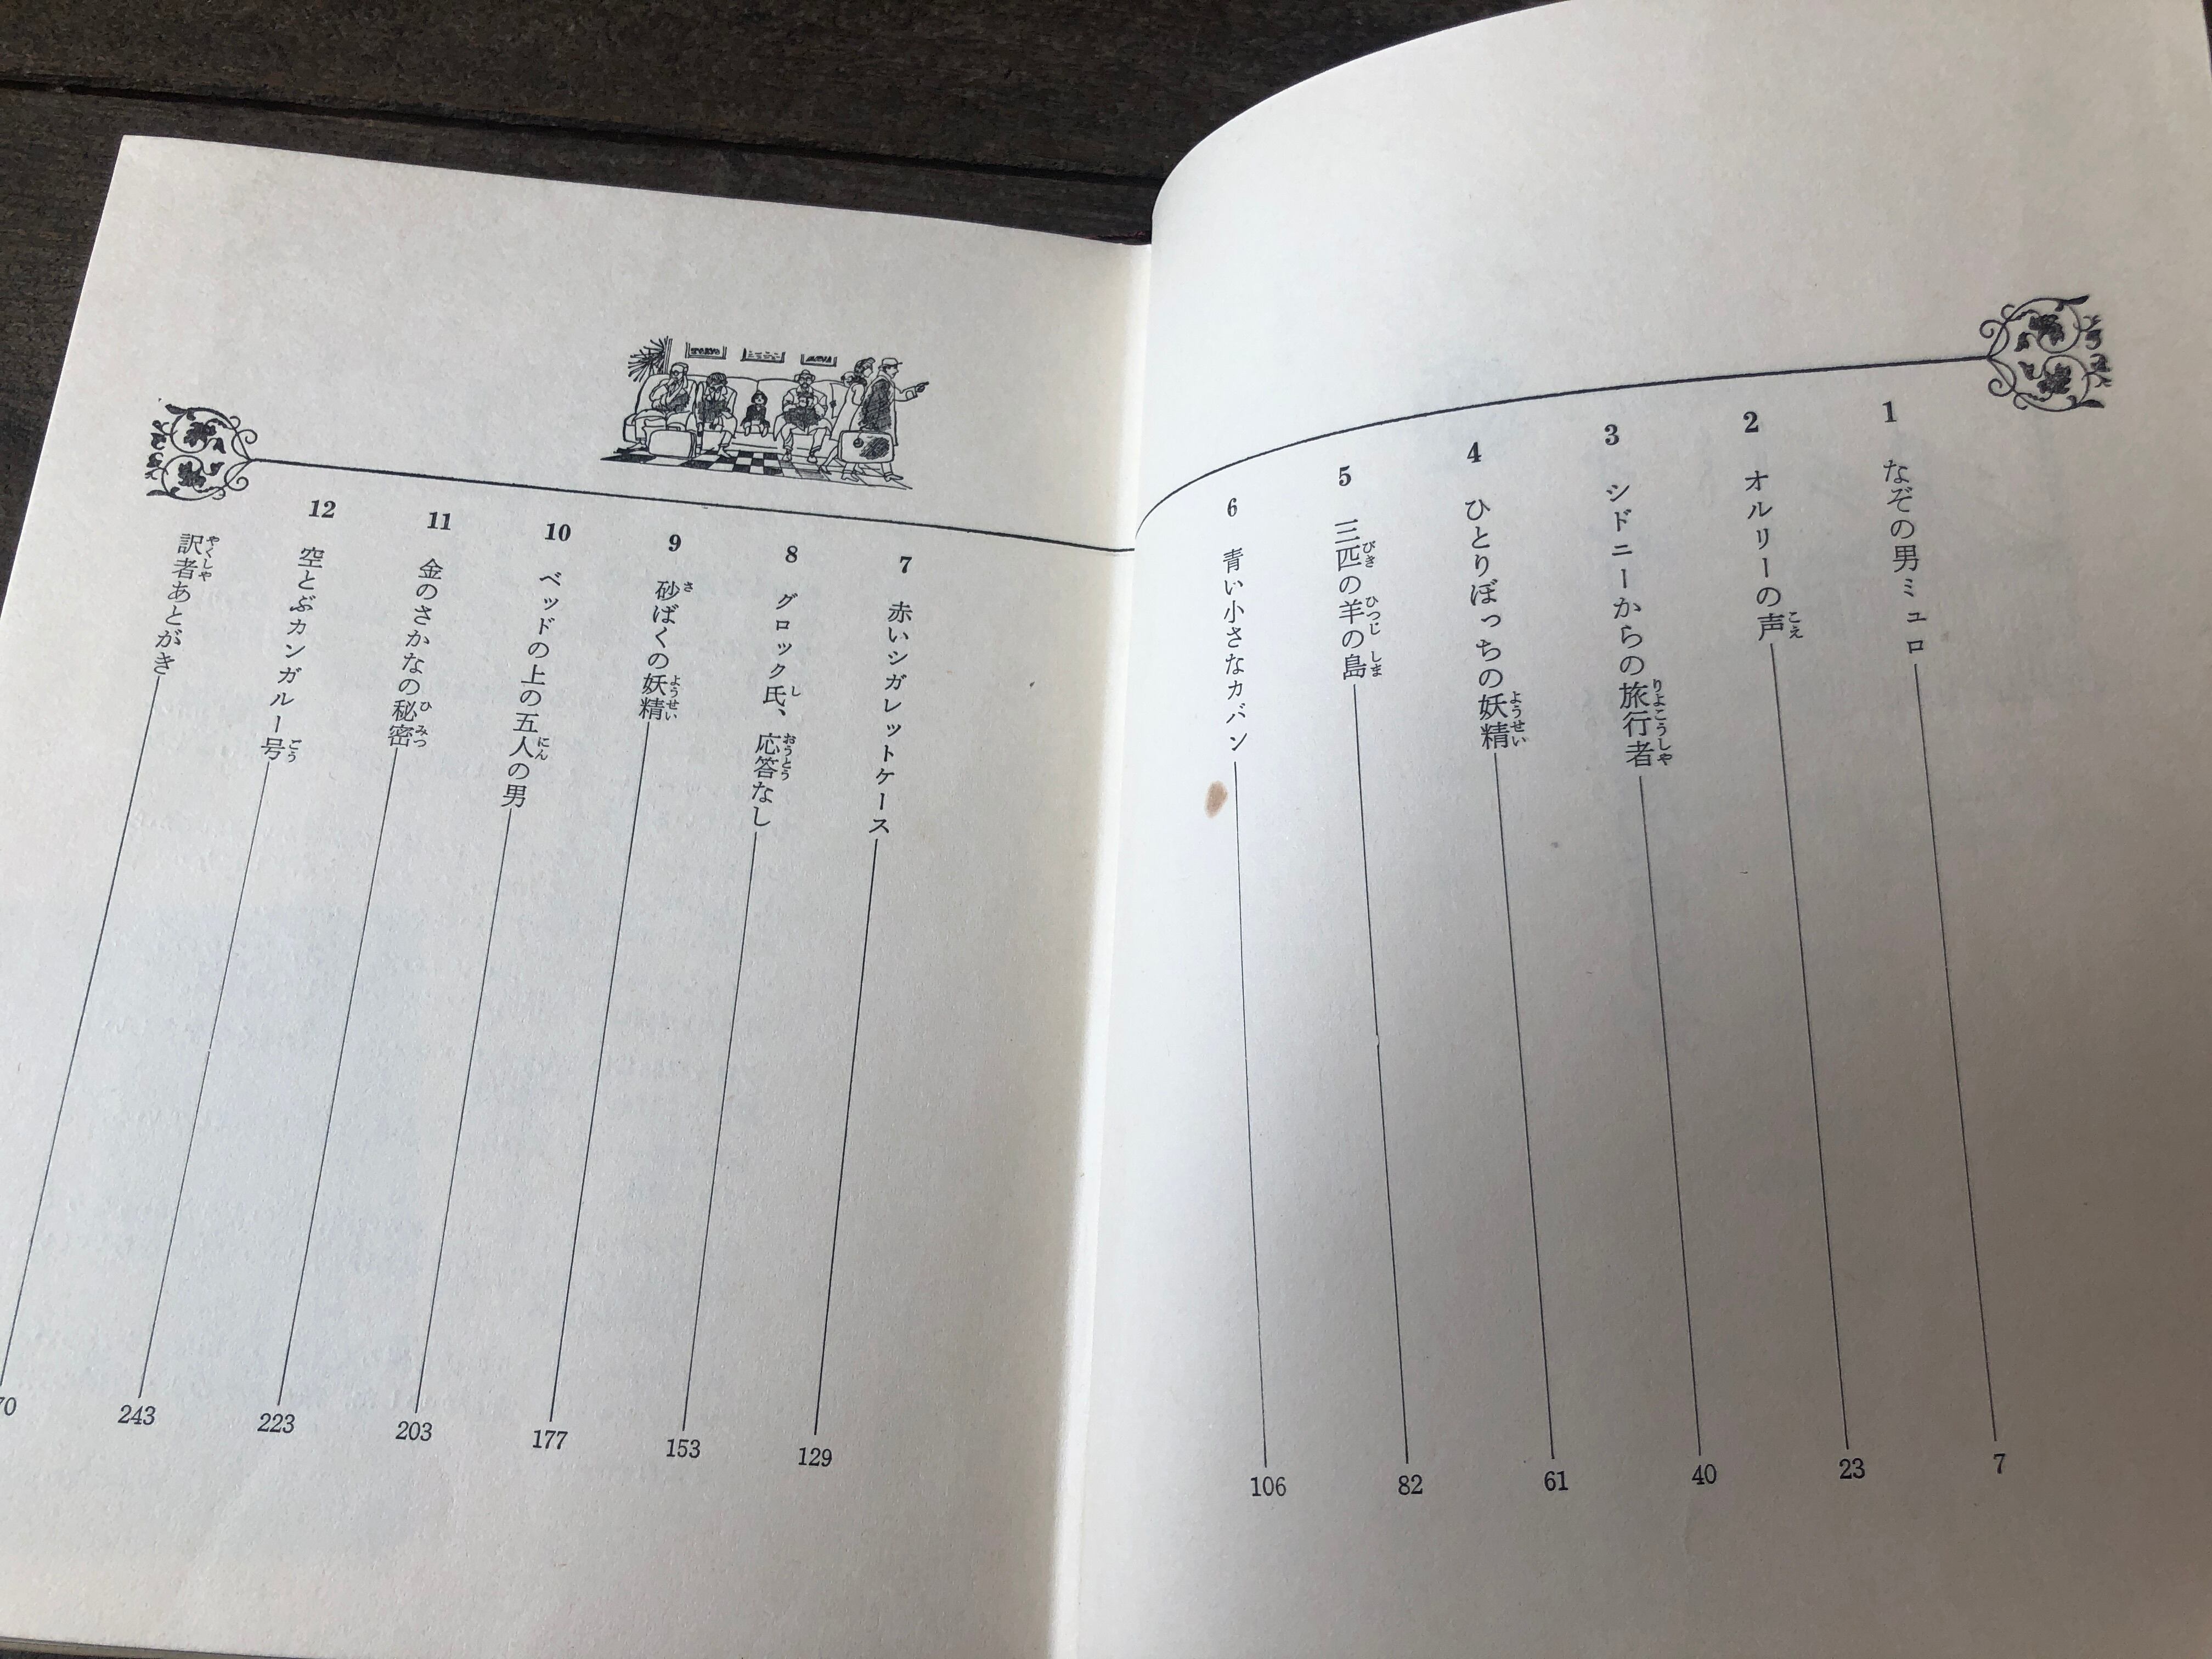 1 なぞの男ミュロ 7
2 オルリーの声 23
3 シドニーからの旅行者 40
4 ひとりぼっちの妖精 61
5 三匹の羊の島 82
6 青い小さなカバン 106
7 赤いシガレットケース 129
8 グロック氏、応答なし 153
9 砂ばくの妖精 177
10 ベッドの上の五人の男 203
11 金のさかなの秘密 223
12 空とぶカンガルー号 243
訳者あとがき 70